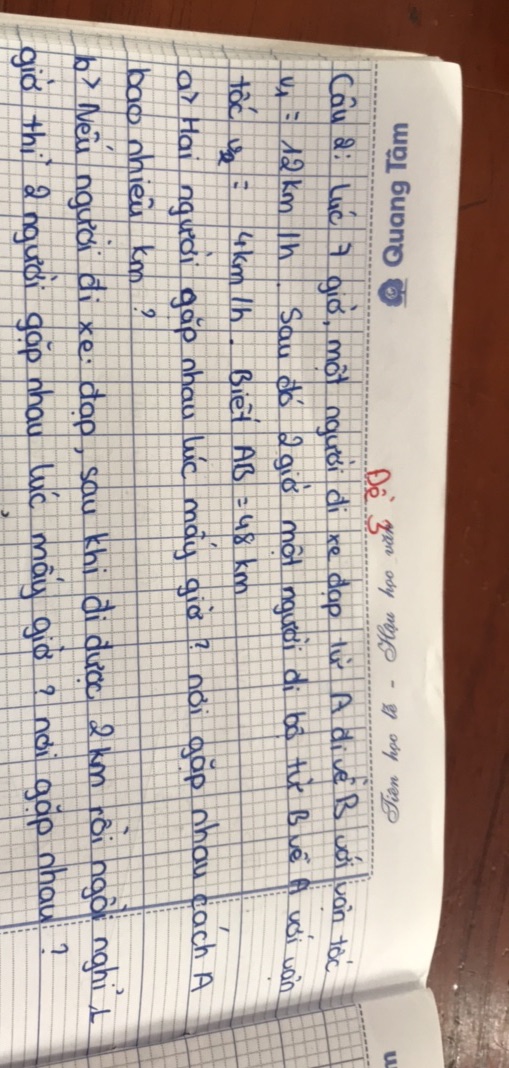 Quang Tâm
Tiên học lễ - Hậu học văn
Đề 3
Câu 2: Lúc 7 giờ, một người đi xe đạp từ A đi về B với vận tốc
v₁ = 12km/h. Sau đó 2 giờ một người đi bộ từ B về A với vận
tốc v₂ = 4km/h. Biết AB = 48 km
a> Hai người gặp nhau lúc mấy giờ? nơi gặp nhau cách A
bao nhiêu km?
b> Nếu người đi xe đạp, sau khi đi được 2 km rồi ngồi nghỉ 1
giờ thì 2 người gặp nhau lúc mấy giờ? nơi gặp nhau?